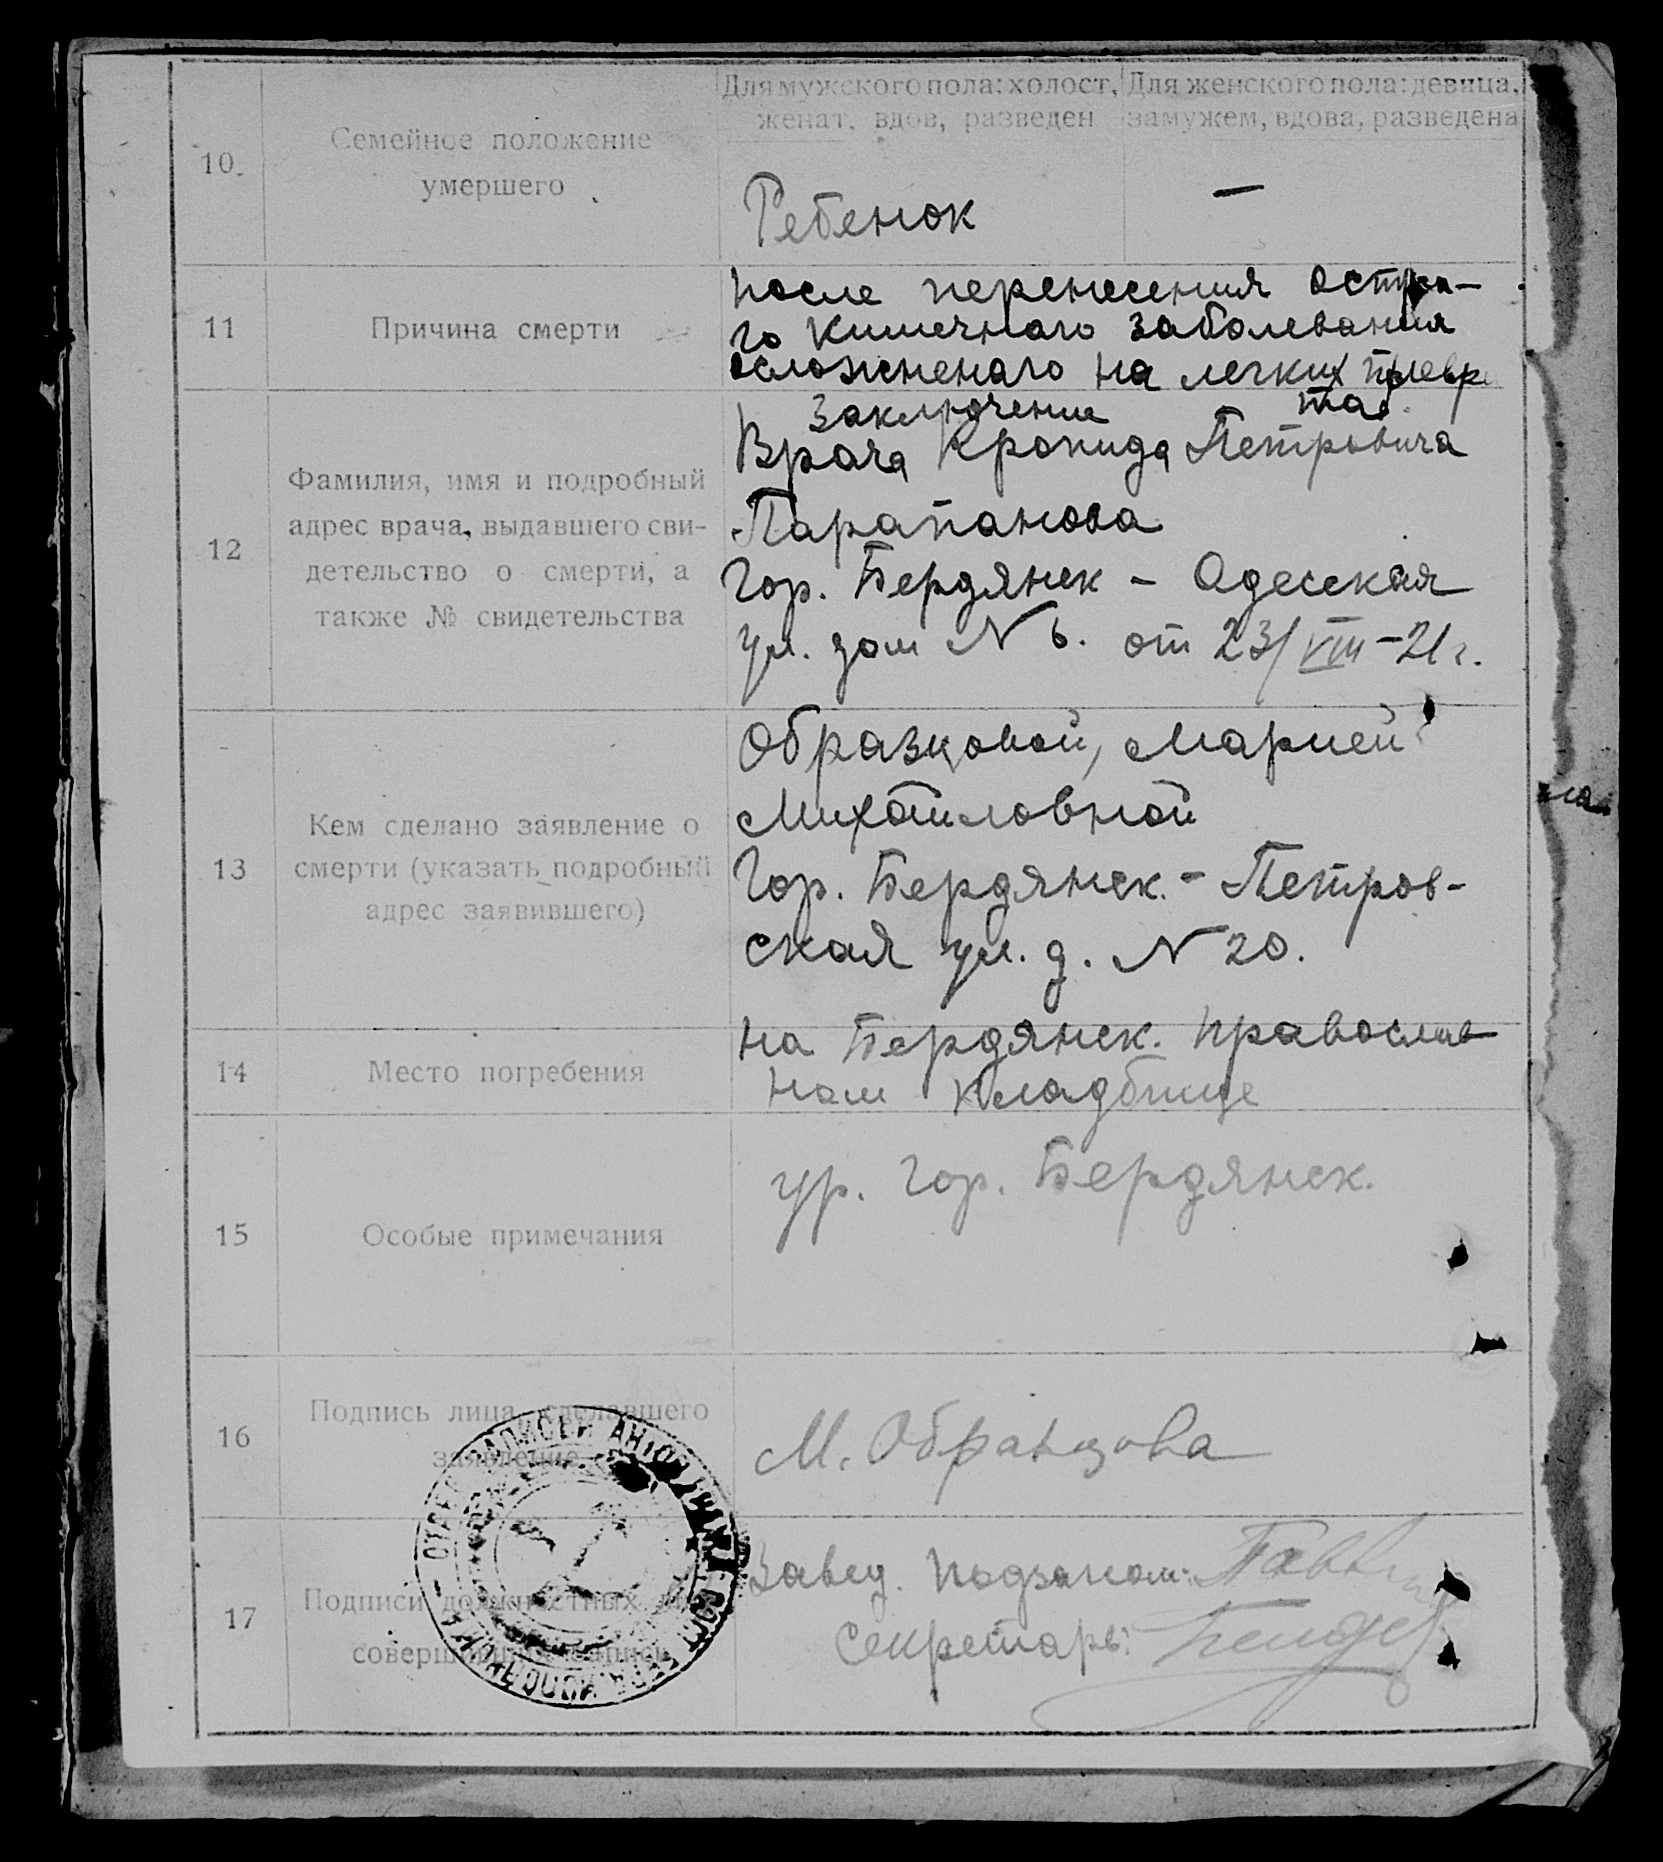 Для мужского пола: холост, женат, вдов, разведен
Для женского пола: девица, замужем, вдова, разведена
10.
Семейное положение
умершего
Ребенок
—
11
Причина смерти
после перенесения остра-
го кишечнаго заболевания
осложненаго на легких плевр
та.
12
Фамилия, имя и подробный
адрес врача, выдавшего сви-
детельство о смерти, а
также № свидетельства
Заключение
Врача Кронида Петровича
Парапанова
Гор. Бердянск – Одесская
ул. дом N 6. от 23/VIII–21 г.
13
Кем сделано заявление о
смерти (указать подробный
адрес заявившего)
Образцовой, Марией
Михайловной
Гор. Бердянск. – Петров-
ская ул. д. N 20.
14
Место погребения
На Бердянск. православ
ном кладбище
15
Особые примечания
ур. гор. Бердянск.
16
Подпись лица, сделавшего
заявление
М. Образцова
17
Подписи должностных
Завед. подзагсом:
Секретарь: